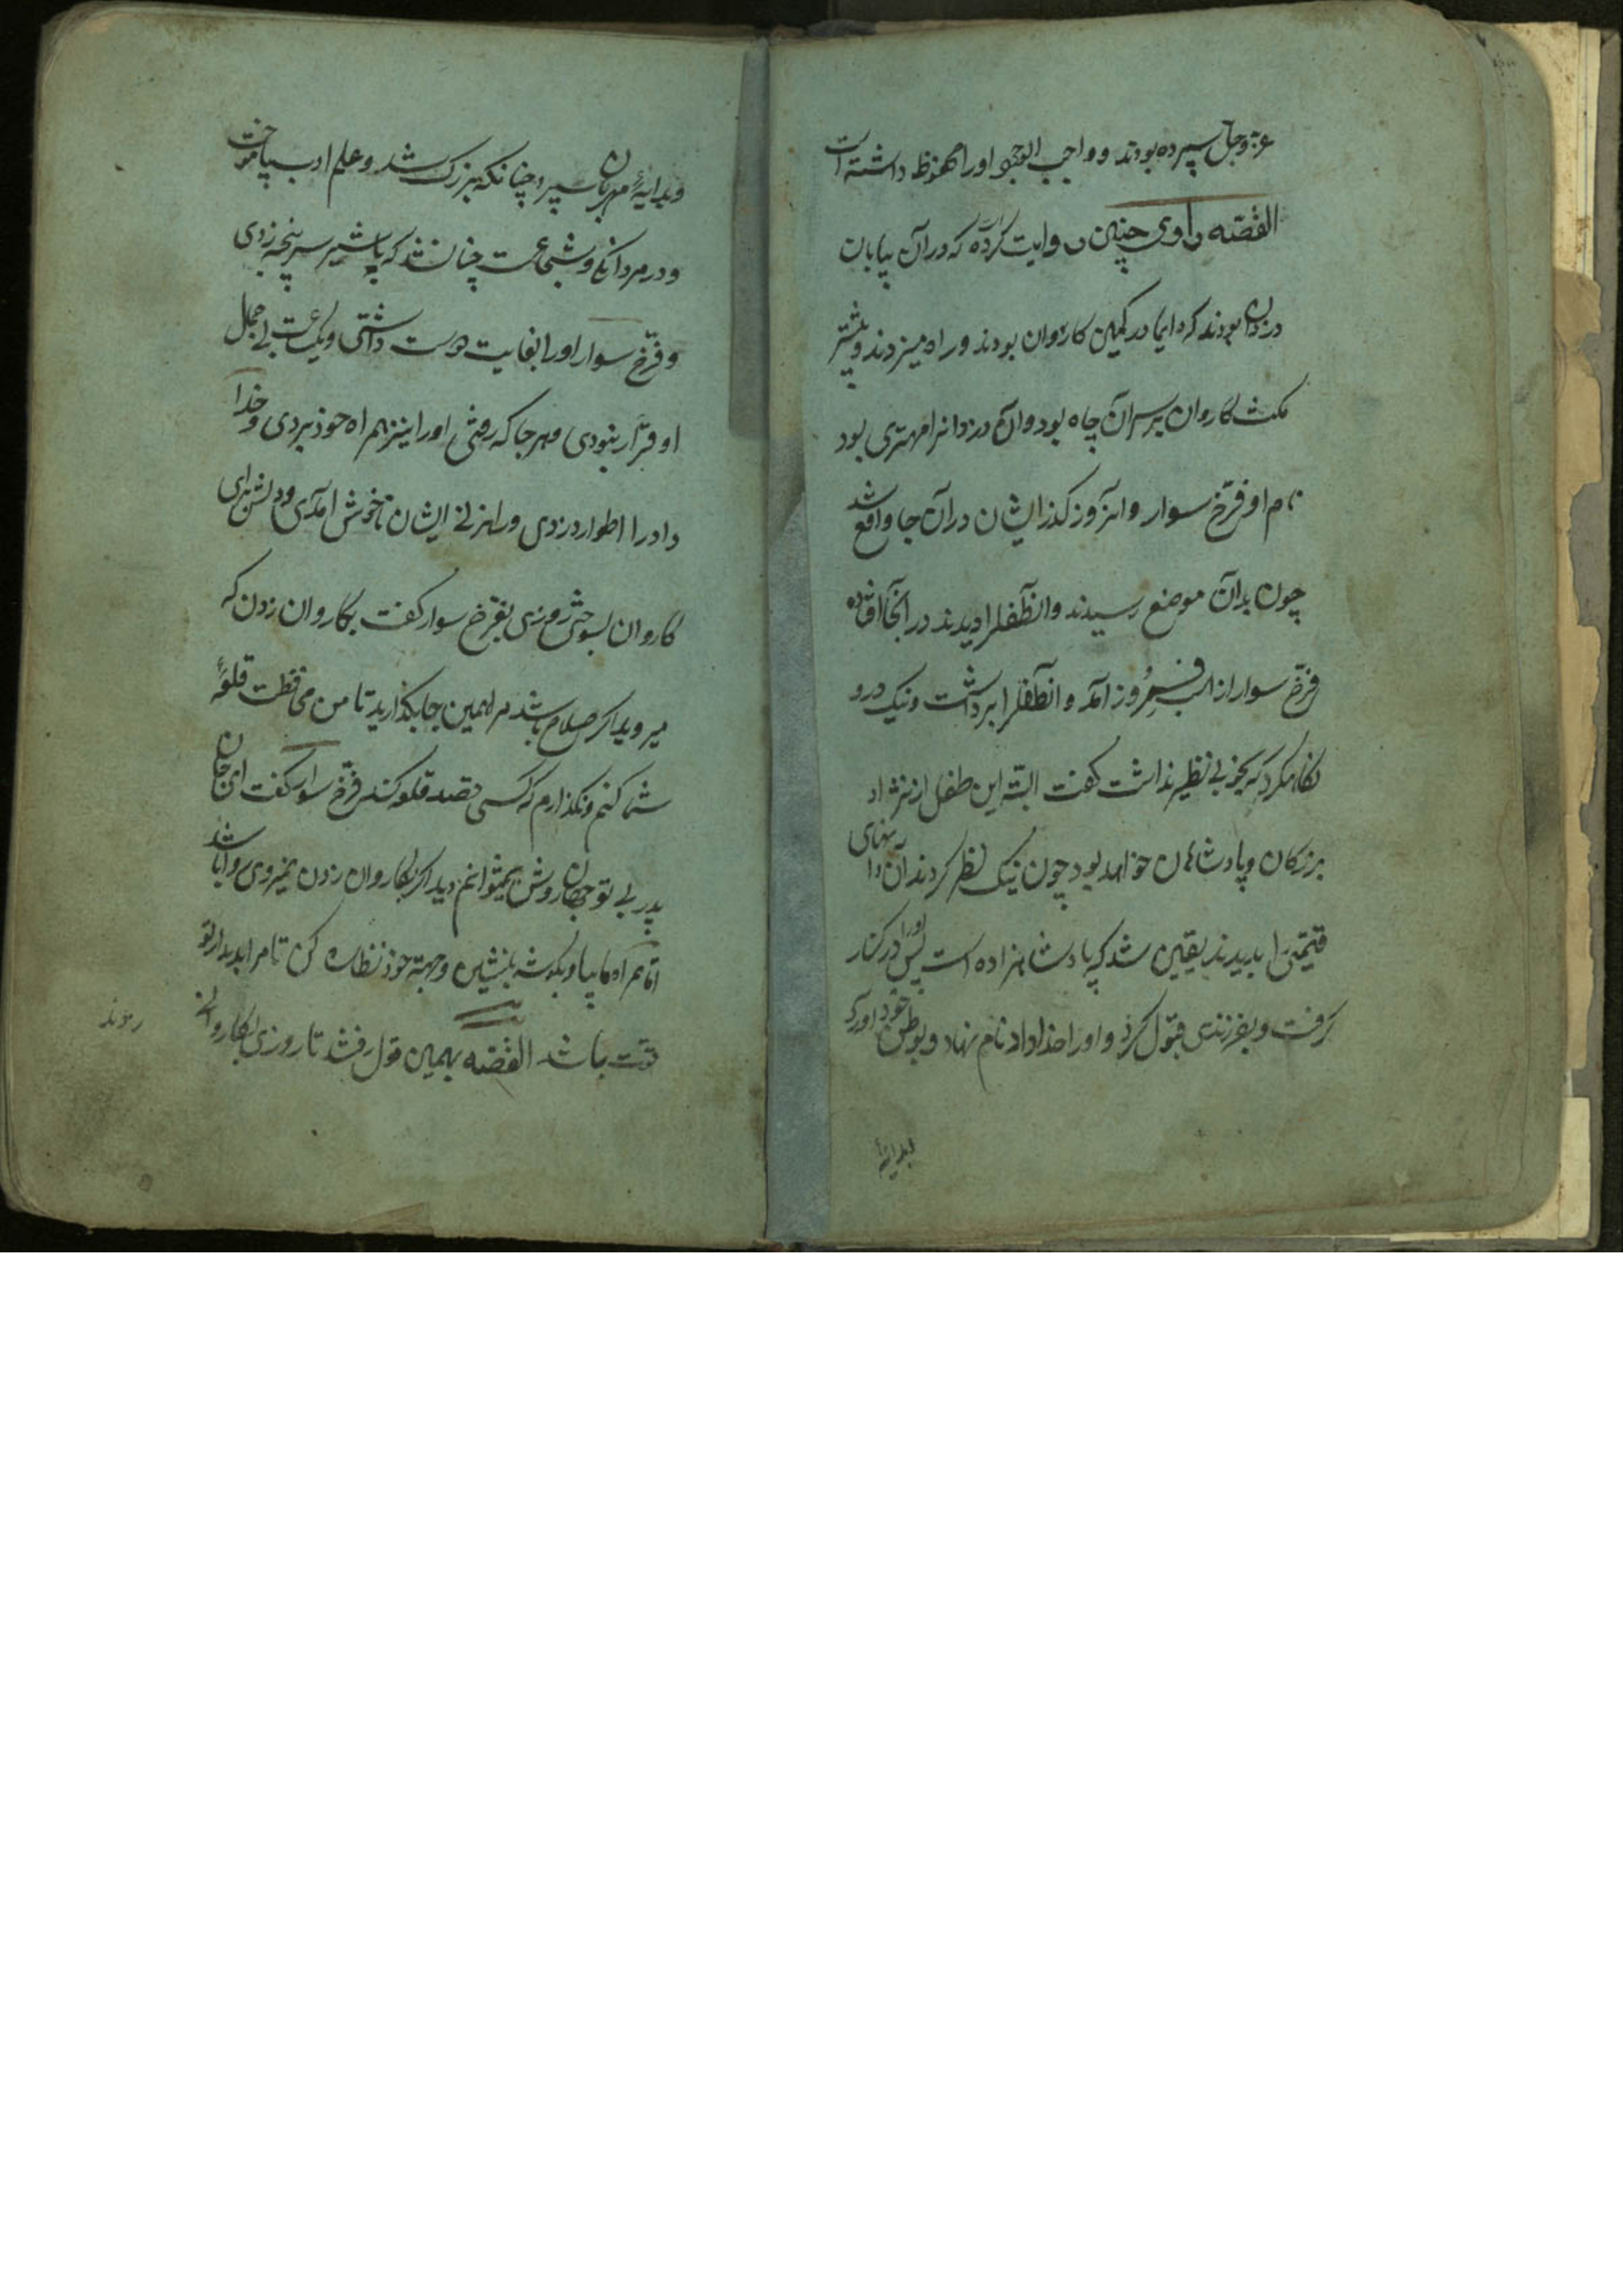 عزّ وجل سپرده بودند و واجب الوجود او را محفوظ داشته است
القصّه راوی چنین روایت کرده که در آن بیابان
دزدان بودند که دایما در کمین کاروان بودند و راه میزدند و بیشتر
مکث کاروان بر سر آن چاه بود و آن دزدانرا مهتری بود
نام او فرّخ سوار و آنروز گذر ایشان در آن جا واقع شد
چون بدآن موضع رسیدند و آنطفلرا دیدند در آنجا افتاده
فرّخ سوار از اسب فرود آمد و آنطفلرا برداشت و نیک درو
نگاه کرد که بخوبی نظیر نداشت گفت البتّه این طفل از نژاد
بزرکان و پادشاهان خواهد بود چون نیک نظر کردند آن دانهای
قیمتی را بدیدند یقین شد که پادشاهزاده است پس او را در کنار
گرفت و بفرزندی قبول کرد و او را خداداد نام نهاد و بوطن خود آورد
بدایهٔ
وبدایهٔ مهربان سپرد چنانکه بزرک شد و علم ادب بیاموخت
و در مردانکی و شجاعت چنان شد که با شیر سر پنجه زدی
و فرّخ سوار او را بغایت دوست داشتی و یکساعت بی جمال
او قرار نبودی و هر جا که رفتی او را نیز همراه خود بردی و خدا
داد را اطوار دزدی و راهزنی ایشان ناخوش آمدی و دلش برای
کاروان بسوختی روزی بفرّخ سوار گفت بکاروان زدن که
میروید اکر صلاح باشد مرا همین جا بکذارید تا من محافظت قلعهٔ
شما کنم و نکذارم که کسی قصد قلعه کند فرّخ سوار گفت ای جان
پدر بی تو جهان روشن نمیتوانم دید اکر بکاروان زدن نمیروی روا باشد
امّا همراه ما بیا و بکوشه بنشین و جهة خود نظاره کن تا مرا بدیدار تو
قوّت باشد القصّه بهمین قول رفتند تا روزی بکاروانی